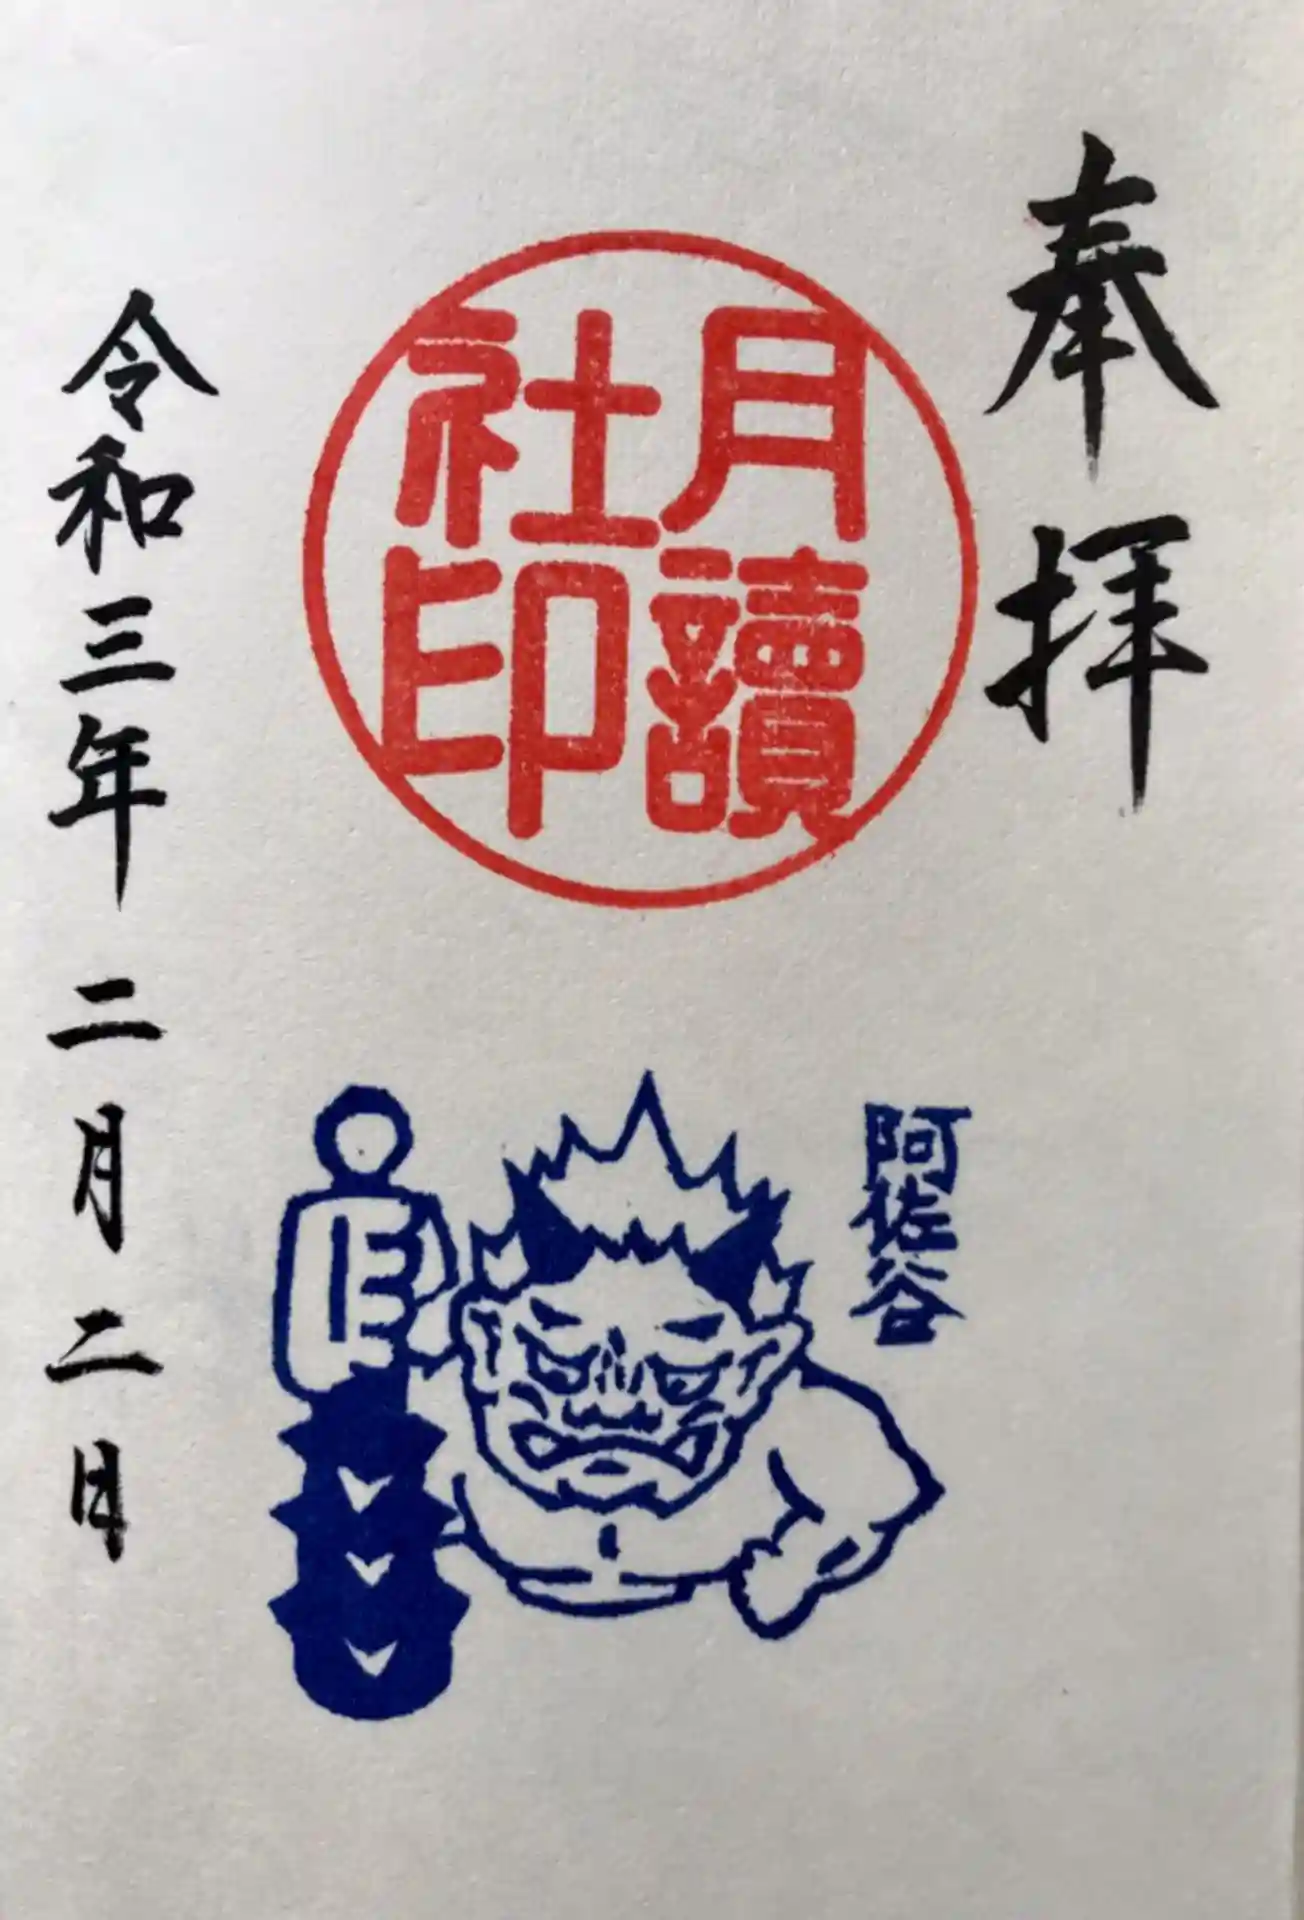 奉拝
月讀
社印
阿佐谷
令和三年二月二日